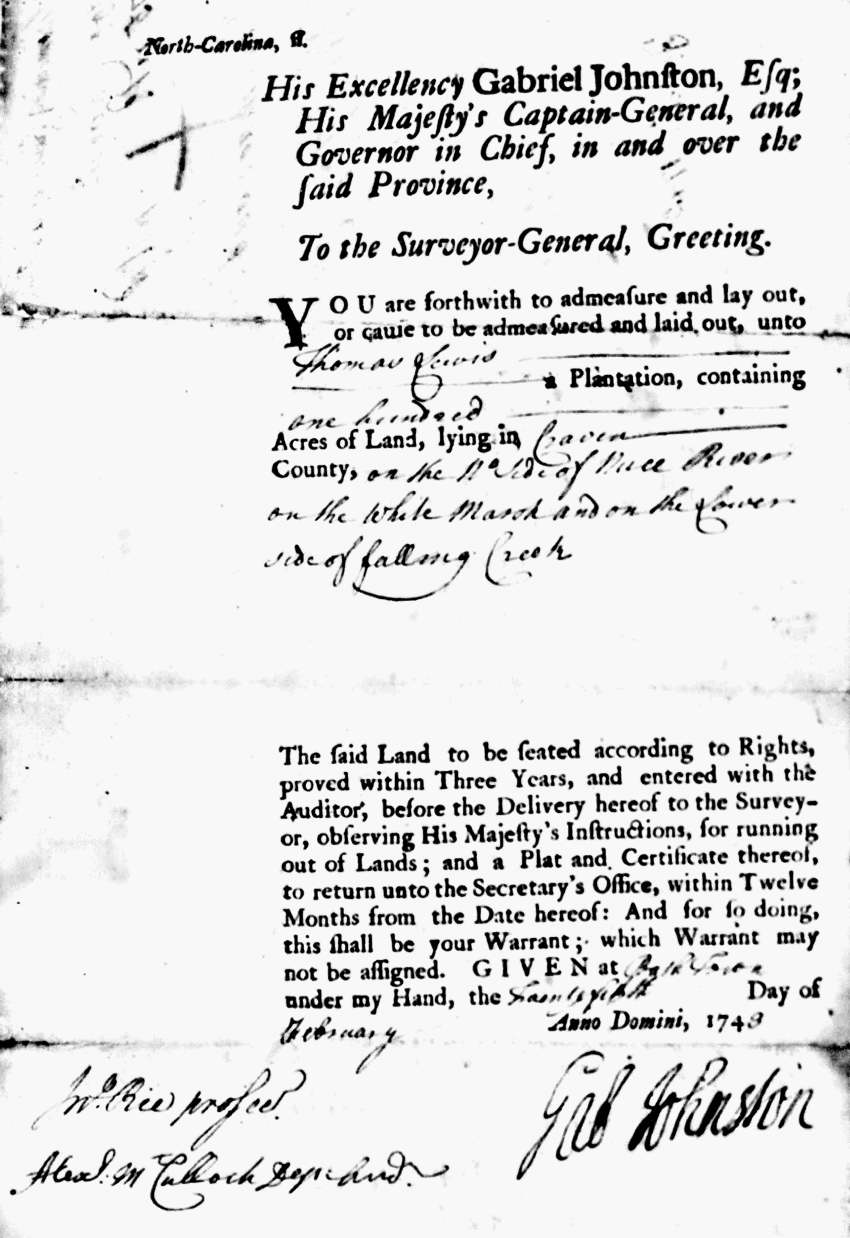 North-Carolina, ſſ.
His Excellency Gabriel Johnſton, Eſq;
His Majeſty's Captain-General, and
Governor in Chief, in and over the
ſaid Province,
To the Surveyor-General, Greeting.
YOU are forthwith to admeaſure and lay out,
or cauſe to be admeaſured and laid out, unto
Thomas Lewis
a Plantation, containing
one hundred
Acres of Land, lying in Craven
County, on the No. Side of Nuce River
on the White Marsh and on the Lower
side of falling Creek
The ſaid Land to be ſeated according to Rights,
proved within Three Years, and entered with the
Auditor, before the Delivery hereof to the Survey-
or, obſerving His Majeſty's Inſtructions, for running
out of Lands; and a Plat and Certificate thereof,
to return unto the Secretary's Office, within Twelve
Months from the Date hereof: And for ſo doing,
this ſhall be your Warrant; which Warrant may
not be aſſigned. GIVEN at Bath Town
under my Hand, the Day of
February Anno Domini, 1748
Gab Johnston
Jno. Rice proſecr.
Alexr. McCulloch Depr Aud.